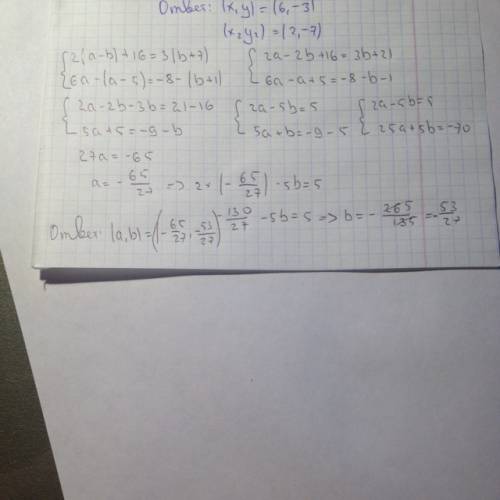 Ответ: (x,y) = (6,-3)
(x₂y₂) = (2,-7)
{2(a-b)+16=3(b+7) {2a-2b+16=3b+21
{6a-(a-5)=-8-(b+1) {6a-a+5=-8-b-1
{2a-2b-3b=21-16 {2a-5b=5 {2a-5b=5
{5a+5=-9-b {5a+b=-9-5 {25a+5b=-70
27a=-65
a=-65/27 => 2*(-65/27)-5b=5
Ответ: (a,b)=(-65/27,-53/27) -130/27-5b=5 => b=-265/135=-53/27